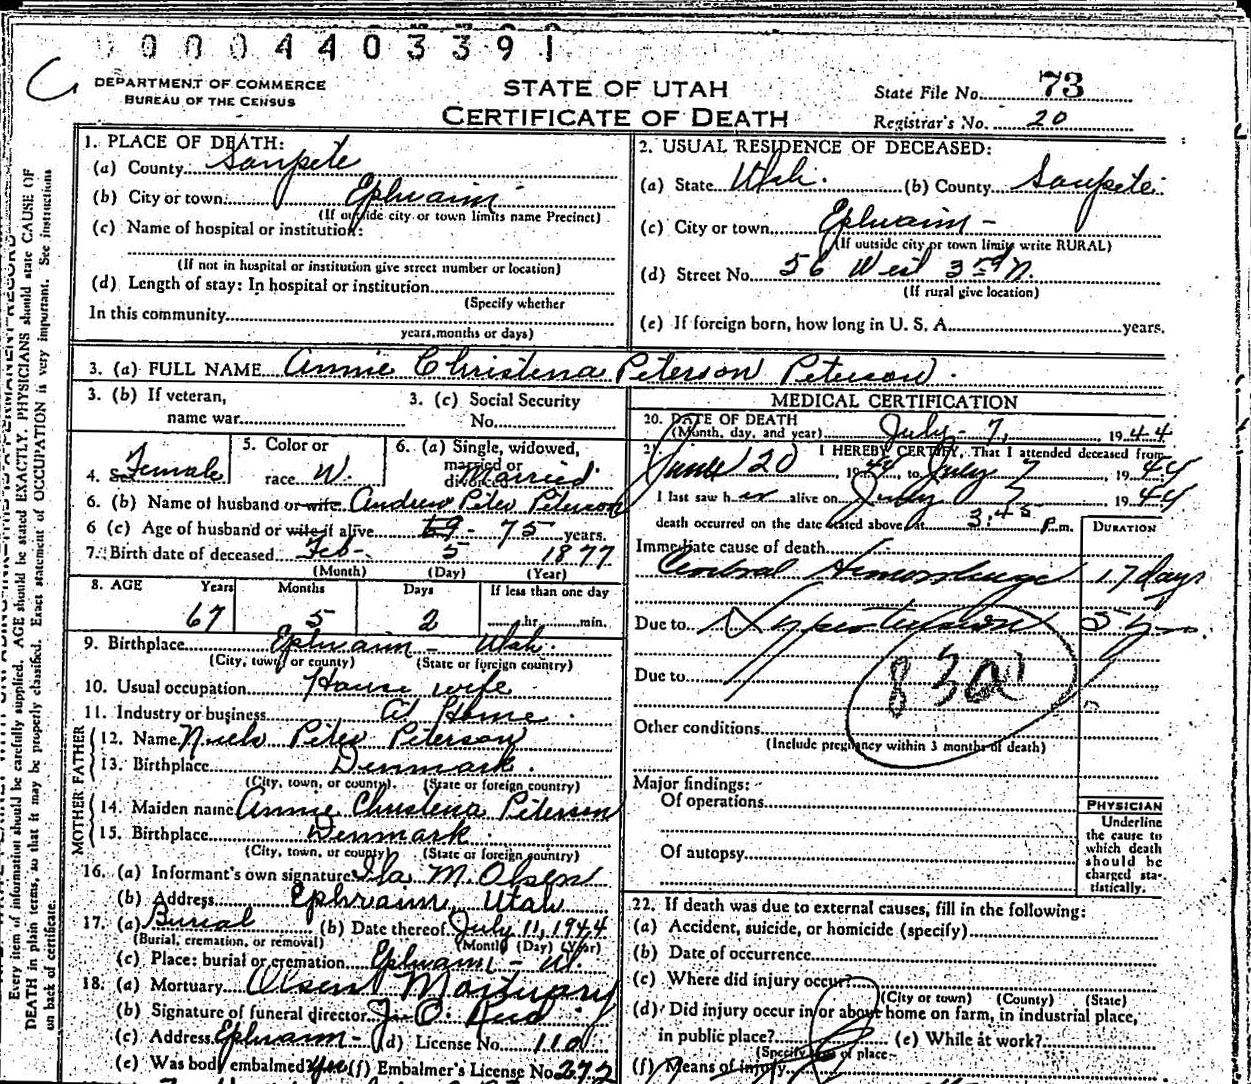 0004403391
C
DEPARTMENT OF COMMERCE
BUREAU OF THE CENSUS
STATE OF UTAH
CERTIFICATE OF DEATH
State File No. 73
Registrar's No. 20
1. PLACE OF DEATH:
(a) County Sanpete
(b) City or town Ephraim
(If outside city or town limits name Precinct)
(c) Name of hospital or institution:
(If not in hospital or institution give street number or location)
(d) Length of stay: In hospital or institution
(Specify whether
In this community
years, months or days)
2. USUAL RESIDENCE OF DECEASED:
(a) State Utah. (b) County Sanpete.
(c) City or town Ephraim -
(If outside city or town limits write RURAL)
(d) Street No. 56 West 3rd N.
(If rural give location)
(e) If foreign born, how long in U. S. A. years.
3. (a) FULL NAME Annie Christena Peterson Peterson.
3. (b) If veteran,
name war
3. (c) Social Security
No.
4. Sex Female
5. Color or
race W.
6. (a) Single, widowed,
married or
divorced Married
6. (b) Name of husband or wife Andrew Peter Peterson
6 (c) Age of husband or wife if alive 69 - 75 years.
7. Birth date of deceased Feb - 5 1877
(Month) (Day) (Year)
8. AGE Years Months Days If less than one day
67 5 2 hr. min.
9. Birthplace Ephraim - Utah.
(City, town, or county) (State or foreign country)
10. Usual occupation House wife
11. Industry or business At Home.
FATHER
12. Name Niels Peter Peterson
13. Birthplace Denmark.
(City, town, or county) (State or foreign country)
MOTHER
14. Maiden name Annie Christena Peterson
15. Birthplace Denmark.
(City, town, or county) (State or foreign country)
16. (a) Informant's own signature Ila M. Olsen
(b) Address Ephraim, Utah
17. (a) Burial (b) Date thereof July 11, 1944
(Burial, cremation, or removal) (Month) (Day) (Year)
(c) Place: burial or cremation Ephraim - Ut.
18. (a) Mortuary Olsen Mortuary
(b) Signature of funeral director
(c) Address Ephraim - (d) License No. 110
(e) Was body embalmed? Yes (f) Embalmer's License No. 272
MEDICAL CERTIFICATION
20. DATE OF DEATH
(Month, day, and year) July - 7, 1944
21. I HEREBY CERTIFY, That I attended deceased from
June 20 1944, to July 7 1944
I last saw her alive on July 7 1944
death occurred on the date stated above, at 3:45 P.m.
DURATION
Immediate cause of death
Cerebral Hemorrhage 17 days
Due to Hypertension 5 y
Due to
830
Other conditions
(Include pregnancy within 3 months of death)
Major findings:
Of operations
Of autopsy
PHYSICIAN
Underline
the cause to
which death
should be
charged sta-
tistically.
22. If death was due to external causes, fill in the following:
(a) Accident, suicide, or homicide (specify)
(b) Date of occurrence
(c) Where did injury occur?
(City or town) (County) (State)
(d) Did injury occur in or about home on farm, in industrial place,
in public place? (e) While at work?
(Specify type of place)
(f) Means of injury
Every item of information should be carefully supplied. AGE should be stated EXACTLY. PHYSICIANS should state CAUSE OF
DEATH in plain terms, so that it may be properly classified. Exact statement of OCCUPATION is very important. See instructions
on back of certificate.